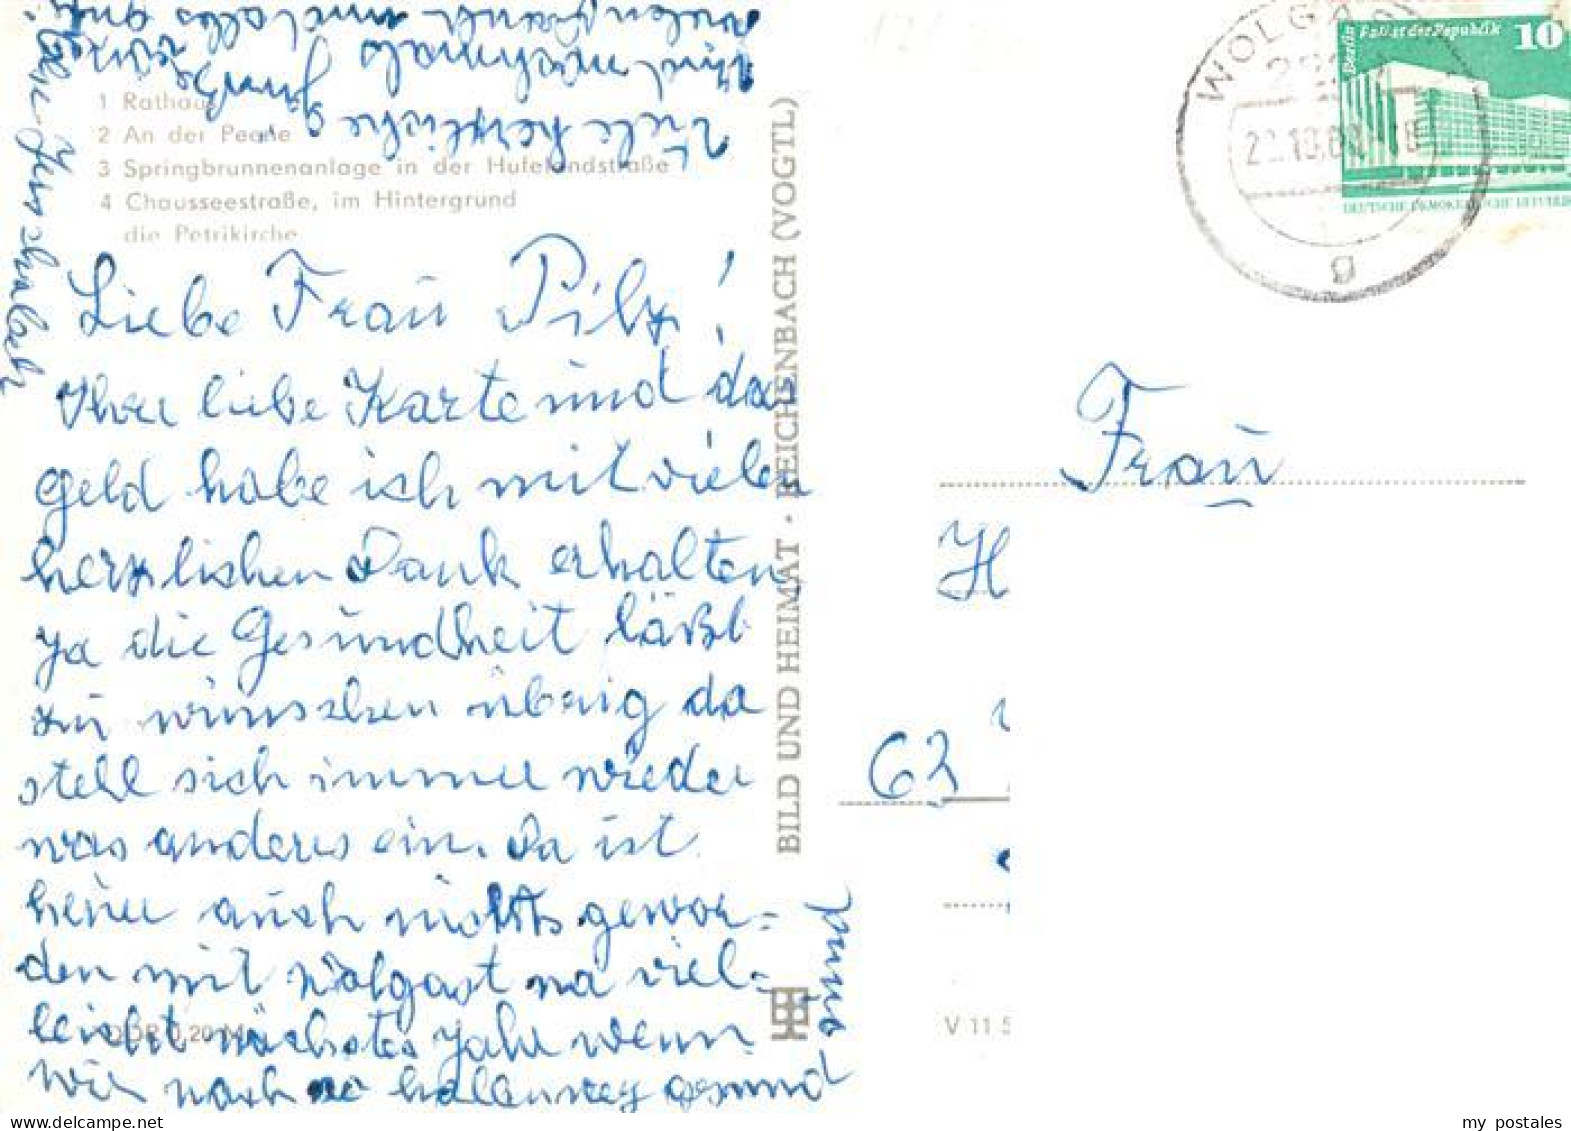 1 Rathaus
2 An der Peene
3 Springbrunnenanlage in der Hufelandstraße
4 Chausseestraße, im Hintergrund
die Petrikirche
Liebe Frau Pilz!
Ihre liebe Karte und das
Geld habe ich mit vielen
herzlichen Dank erhalten,
ja die Gesundheit läßt
zu wünschen übrig da
stell sich immer wieder
was anderes ein. Da ist
heuer auch nichts gewor=
den mit Wolgast na viel=
leicht nächstes Jahr wenn
wir noch so halbweg gesund
sind
Viele herzliche Grüße
und nochmals
vielen Dank und alles gute
BILD UND HEIMAT · REICHENBACH (VOGTL)
DDR 0,20 M
WOLGAST
22
22.10.
g
Berlin Palast der Republik 10
DEUTSCHE DEMOKRATISCHE REPUBLIK
Frau
H
63
V 11 5
my postales